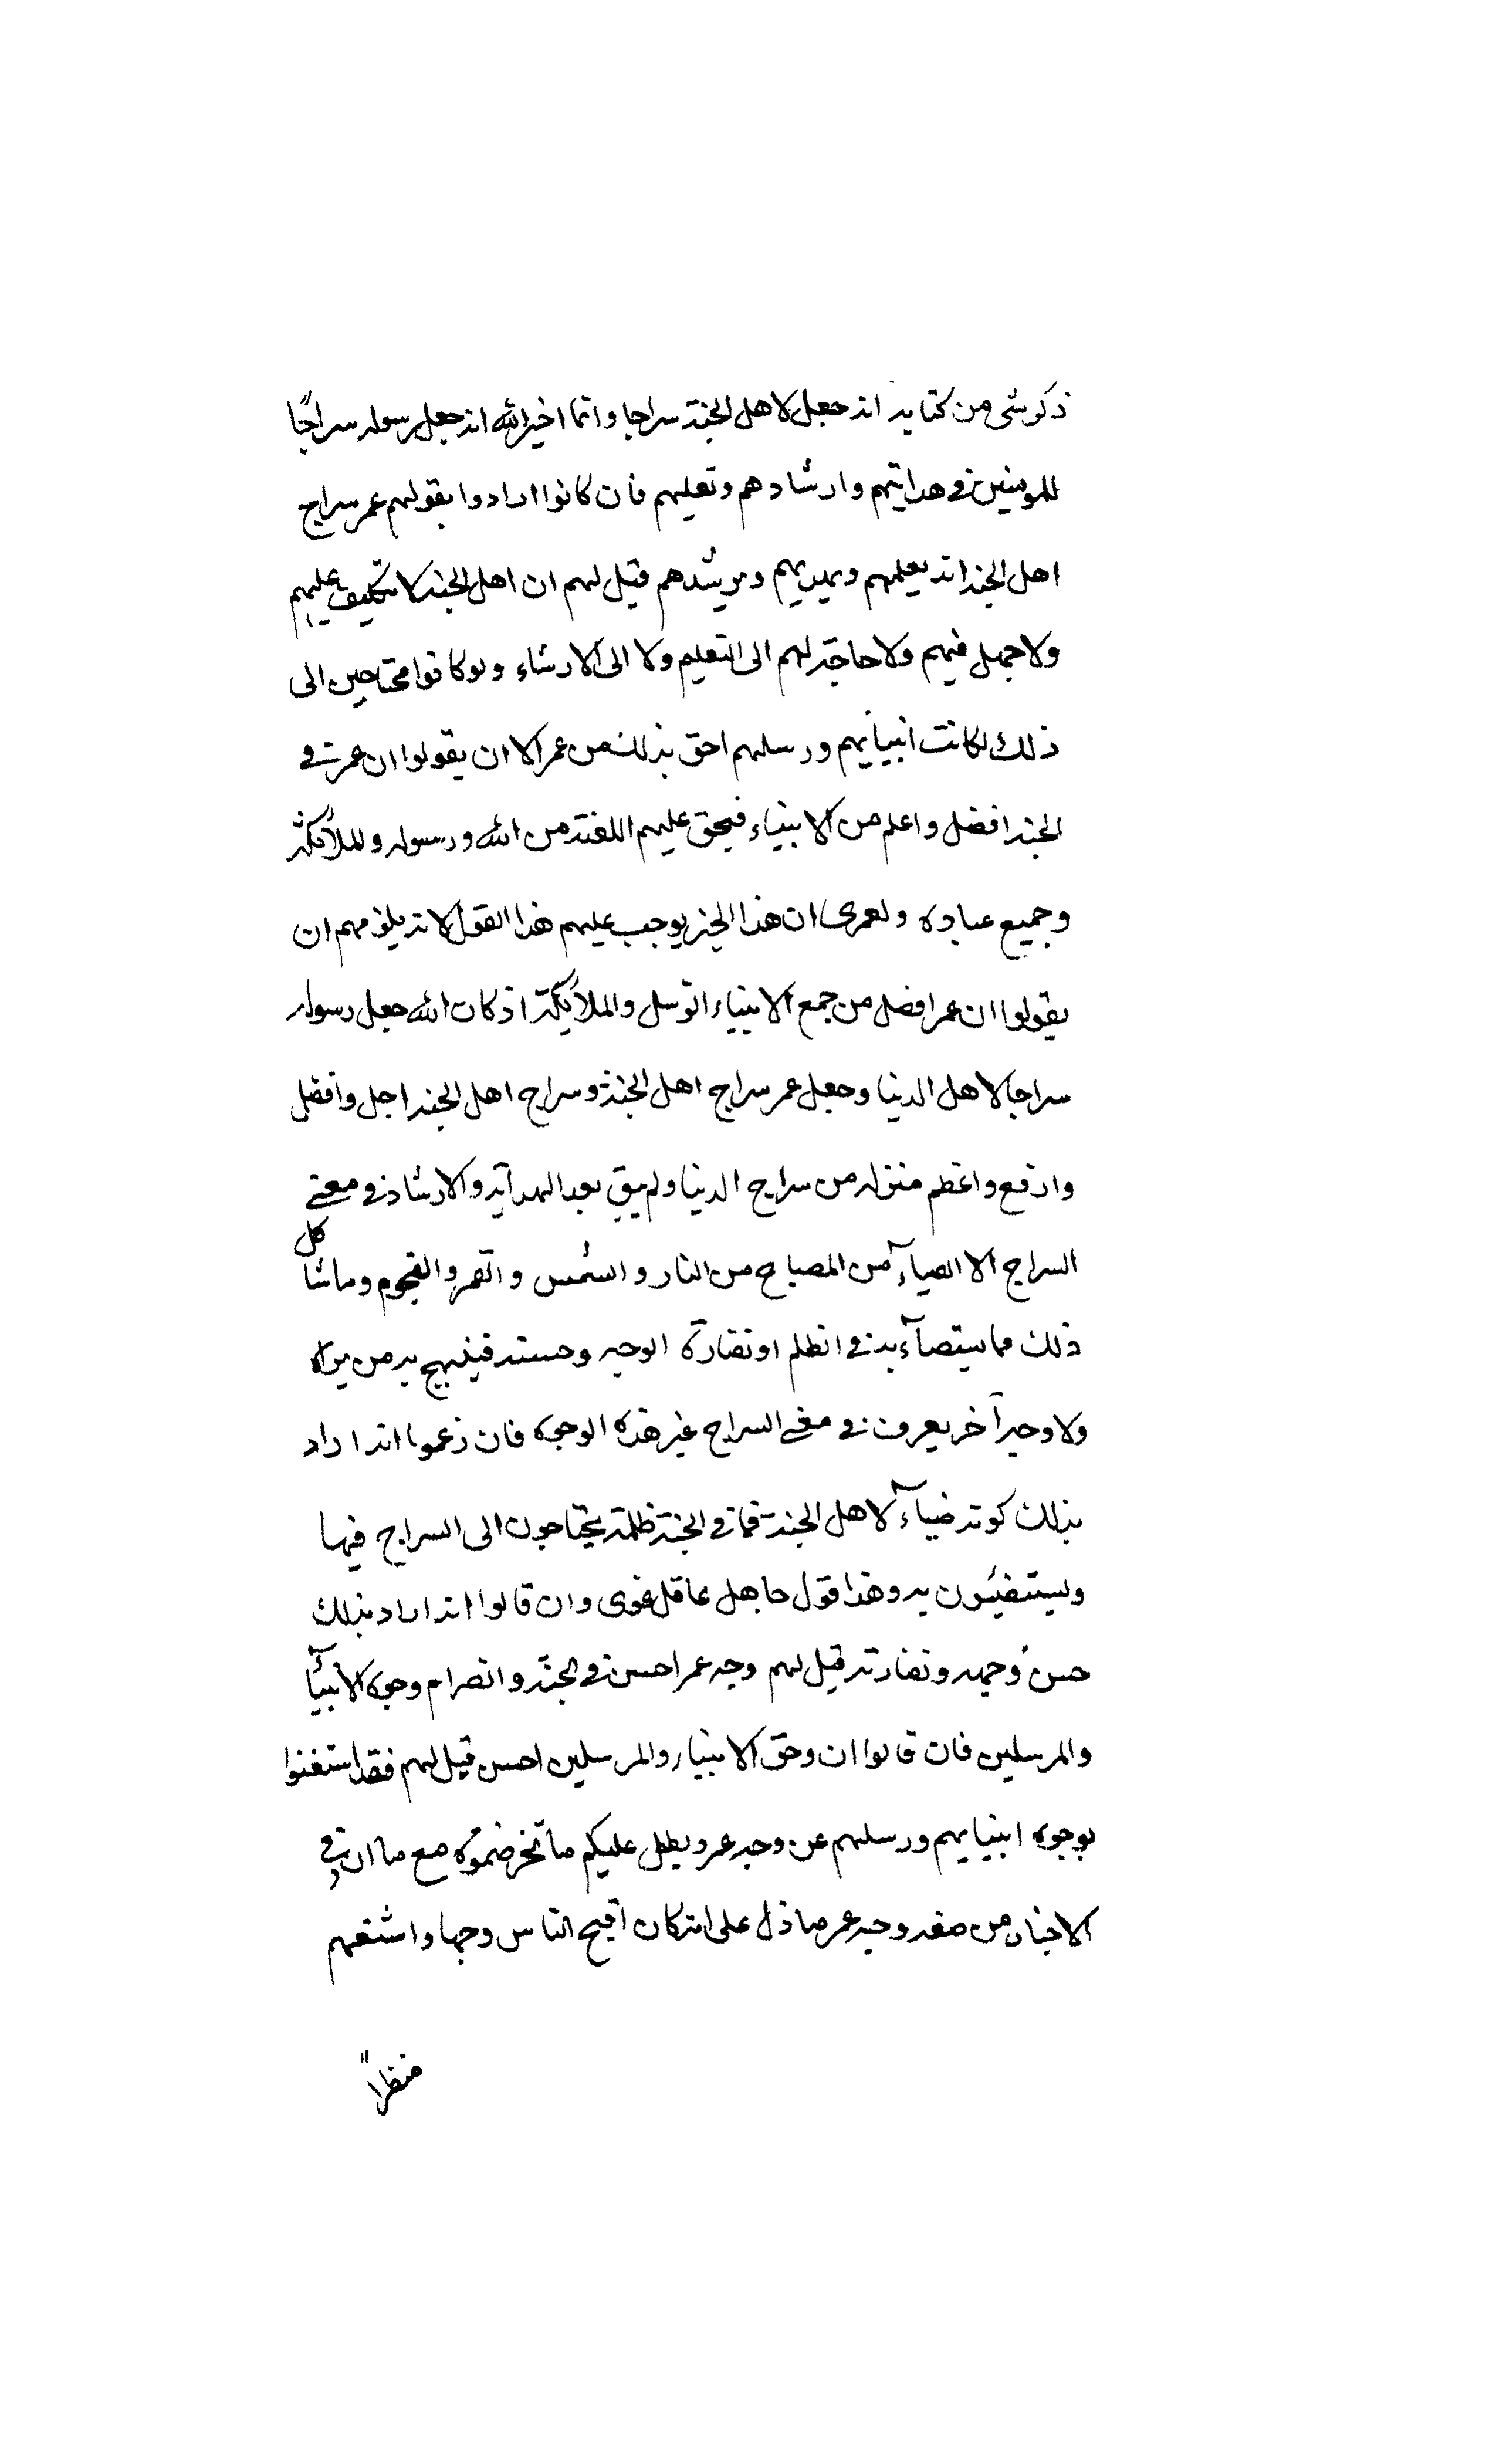 ذكر شى من كتابه انه جعل لاهل الجنة سراجا وانما اخبر الله انه جعل رسوله سراجًا
للمومنين فى هدايتهم وارشادهم وتعليمهم فان كانوا ارادوا بقولهم عمر سراج
اهل الجنة انه يعلمهم ويهديهم ويرشدهم قيل لهم ان اهل الجنة لا تكليف عليهم
ولا جهل فيهم ولا حاجة لهم الى التعليم ولا الى الارشاء ولو كانوا محتاجين الى
ذلك لكانت انبيائهم ورسلهم احق بذلك من عمر الا ان يقولوا ان عمر فى
الجنة افضل واعلم من الانبياء فيحق عليهم اللعنة من الله ورسوله والملائكة
وجميع عباده ولعمرى ان هذا الخبر يوجب عليهم هذا القول لانه يلزمهم ان
يقولوا ان عمر افضل من جمع الانبياء الرسل والملائكة اذ كان الله جعل رسوله
سراجا لاهل الدنيا وجعل عمر سراج اهل الجنة وسراج اهل الجنة اجل وافضل
وارفع واعظم منزله من سراج الدنيا ولم يبق بعد الهداية والارشاد فى معنى
السراج الا الضيآء من المصباح من النار والشمس والقمر والنجوم وماشاكل
ذلك مما يستضآء به فى الظلم او نضارة الوجه وحسنه فيبهج به من يراه
ولا وجه آخر يعرف فى معنى السراج غير هذه الوجوه فان زعموا انه اراد
بذلك كونه ضيآء لاهل الجنة فما فى الجنة ظلمة يحتاجون الى السراج فيها
ويستضيئون به وهذا قول جاهل عاقل غوى وان قالوا انه اراد بذلك
حسن وجهه ونضارته قيل لهم وجه عمر احسن فى الجنة وانضر ام وجوه الانبيآء
والمرسلين فان قالوا ان وجوه الانبياء والمرسلين احسن قيل لهم فقد استغنوا
بوجوه انبيايهم ورسلهم عن وجه عمر وبطل عليكم ما تخرضموه مع ما ان فى
الاخبار من صفه وجه عمر ما دل على انه كان اقبح الناس وجها واشنعهم
منظراً